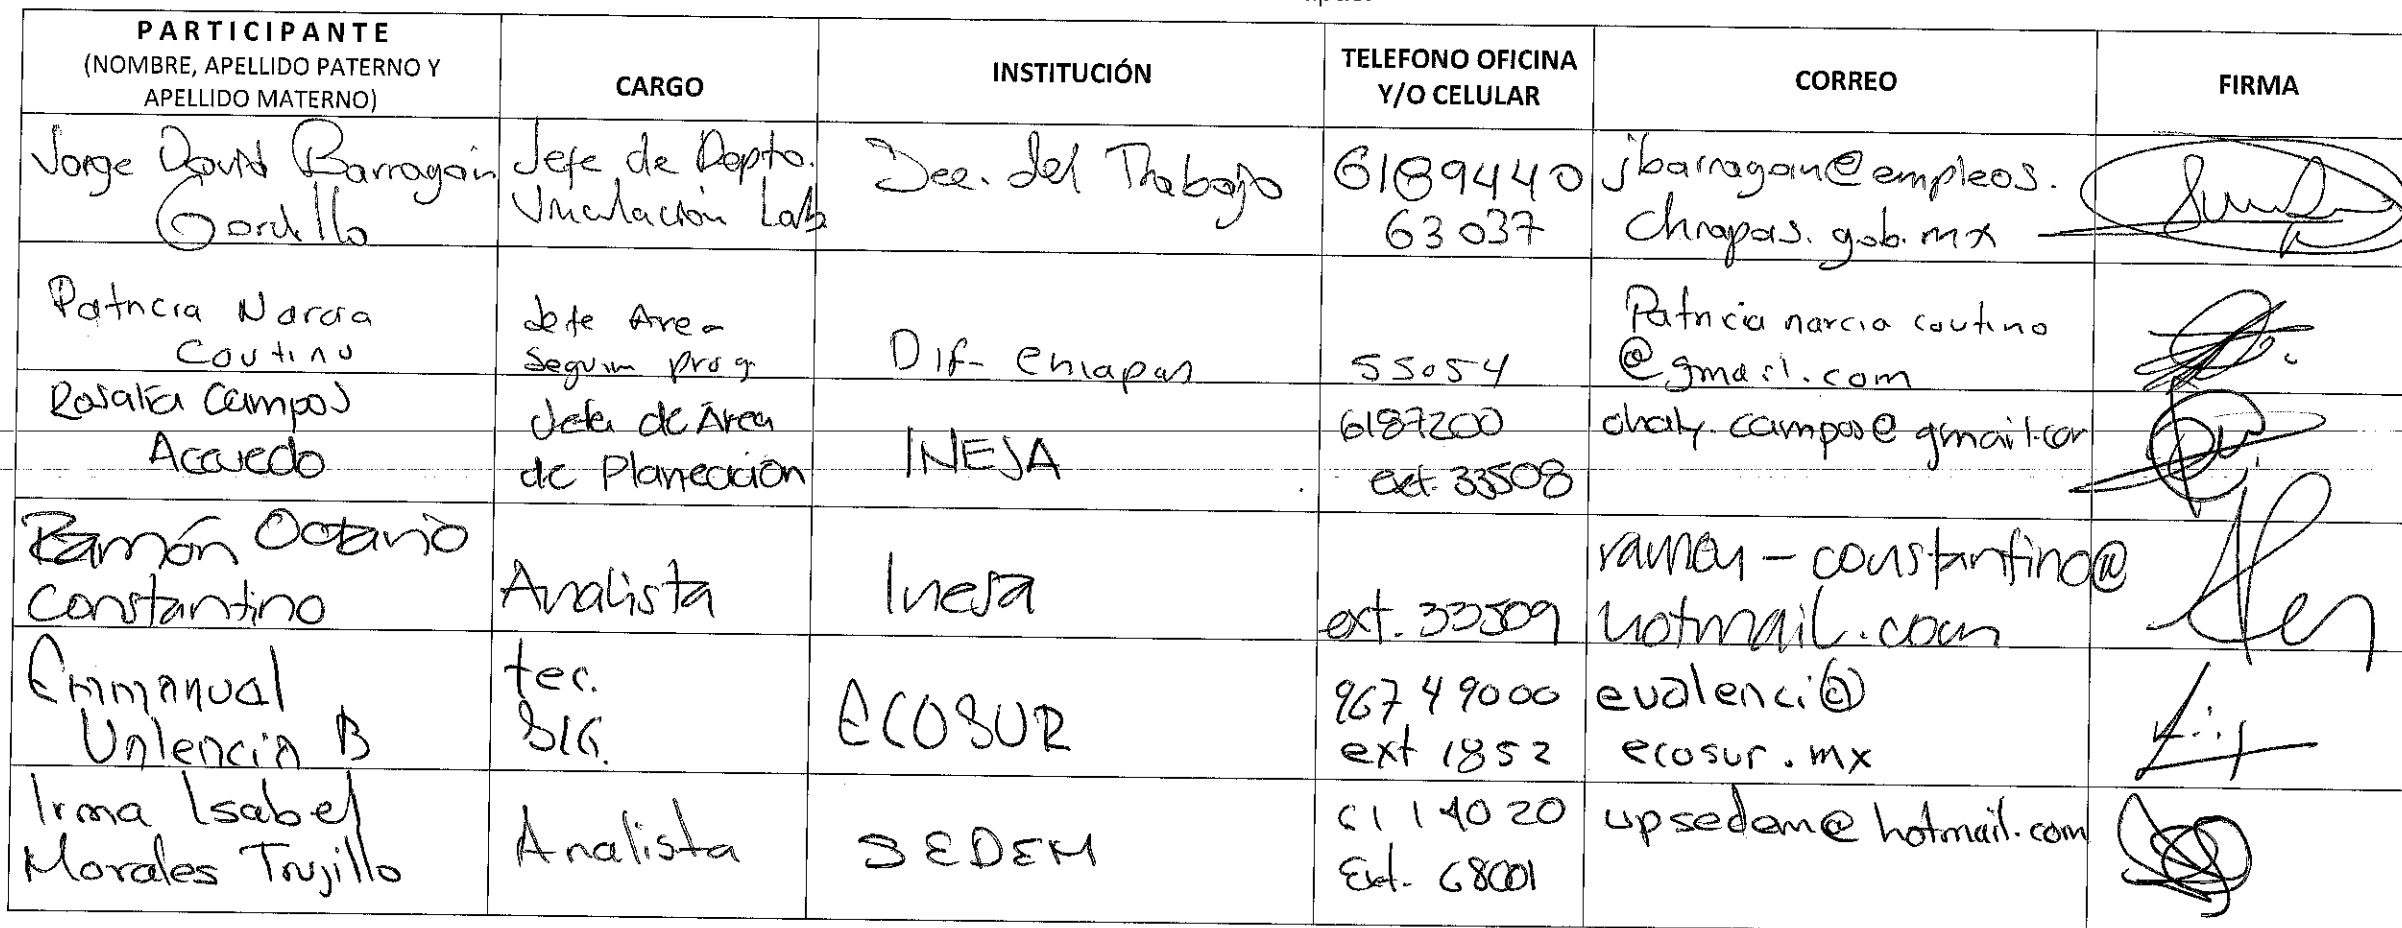 PARTICIPANTE
(NOMBRE, APELLIDO PATERNO Y
APELLIDO MATERNO)
CARGO
INSTITUCIÓN
TELEFONO OFICINA
Y/O CELULAR
CORREO
FIRMA
Jorge David Barragán
Gordillo
Jefe de Depto.
Vinculación Lab
Sec. del Trabajo
6189440
63037
jbarragan@empleos.
chiapas.gob.mx
Patricia Narcia
Coutino
Jefe Area
Seguim prog
Dif- Chiapas
55054
Patricia narcia coutino
@gmail.com
Rosalia Campos
Acevedo
Jefa de Área
de Planeación
INEJA
6187200
ext. 33508
chaly.campos@gmail.com
Ramón Octavio
Constantino
Analista
Ineja
ext. 33509
ramon-constantino@
hotmail.com
Emmanual
Valencia B
tec.
SIG.
ECOSUR
967 49000
ext 1852
evalenci@
ecosur.mx
Irma Isabel
Morales Trujillo
Analista
SEDEM
61 14020
Ext. 68001
upsedem@hotmail.com